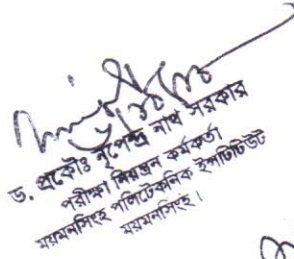 ড. প্রকৌঃ নৃপেন্দ্র নাথ সরকার
পরীক্ষা নিয়ন্ত্রন কর্মকর্তা
ময়মনসিংহ পলিটেকনিক ইনষ্টিটিউট
ময়মনসিংহ।